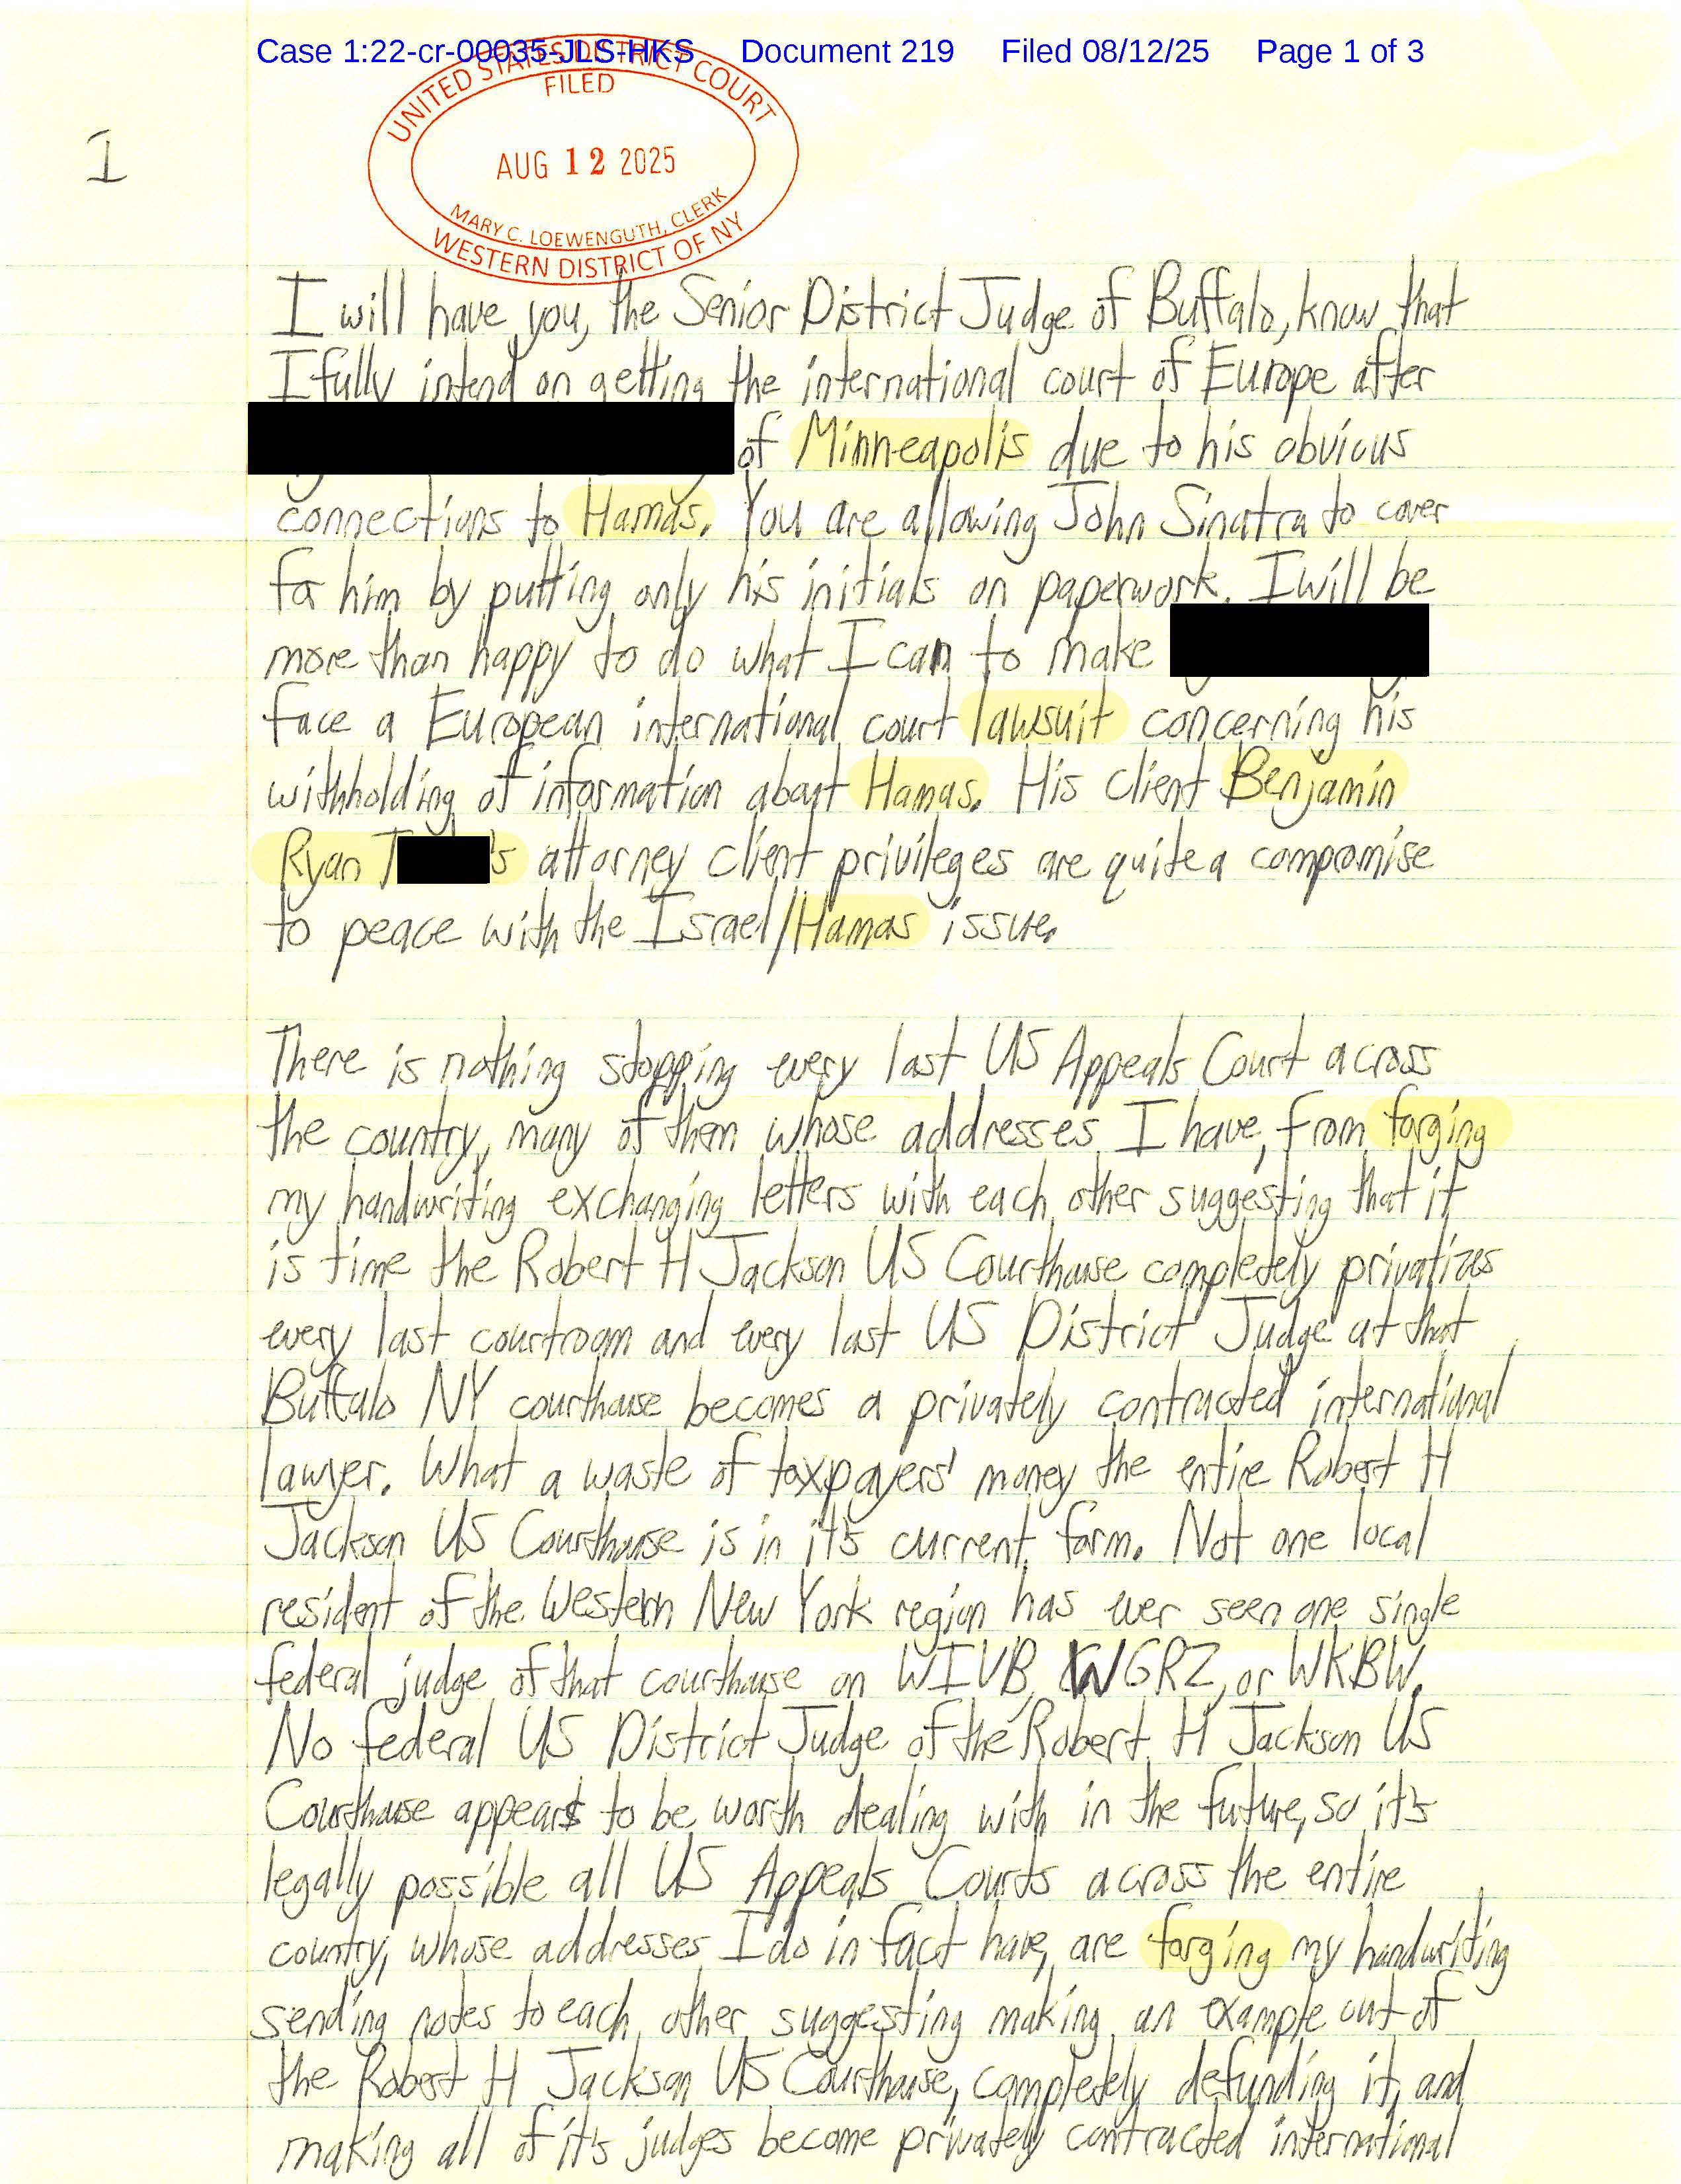 Case 1:22-cr-00035-JLS-HKS Document 219 Filed 08/12/25 Page 1 of 3
UNITED STATES DISTRICT COURT
FILED
AUG 12 2025
MARY C. LOEWENGUTH, CLERK
WESTERN DISTRICT OF NY
1
I will have you, the Senior District Judge of Buffalo, know that
I fully intend on getting the international court of Europe after
of Minneapolis due to his obvious
connections to Hamas. You are allowing John Sinatra to cover
for him by putting only his initials on paperwork. I will be
more than happy to do what I can to make
face a European international court lawsuit concerning his
withholding of information about Hamas. His client Benjamin
Ryan T 's attorney client privileges are quite a compromise
to peace with the Israel/Hamas issue.
There is nothing stopping every last US Appeals Court across
the country, many of them whose addresses I have, from forging
my handwriting exchanging letters with each other suggesting that it
is time the Robert H Jackson US Courthouse completely privatizes
every last courtroom and every last US District Judge at that
Buffalo NY courthouse becomes a privately contracted international
lawyer. What a waste of taxpayers' money the entire Robert H
Jackson US Courthouse is in it's current form. Not one local
resident of the Western New York region has ever seen one single
federal judge of that courthouse on WIVB, WGRZ, or WKBW.
No federal US District Judge of the Robert H Jackson US
Courthouse appears to be worth dealing with in the future, so it's
legally possible all US Appeals Courts across the entire
country, whose addresses I do in fact have, are forging my handwriting
sending notes to each other suggesting making an example out of
the Robert H Jackson US Courthouse, completely defunding it, and
making all of it's judges become privately contracted international